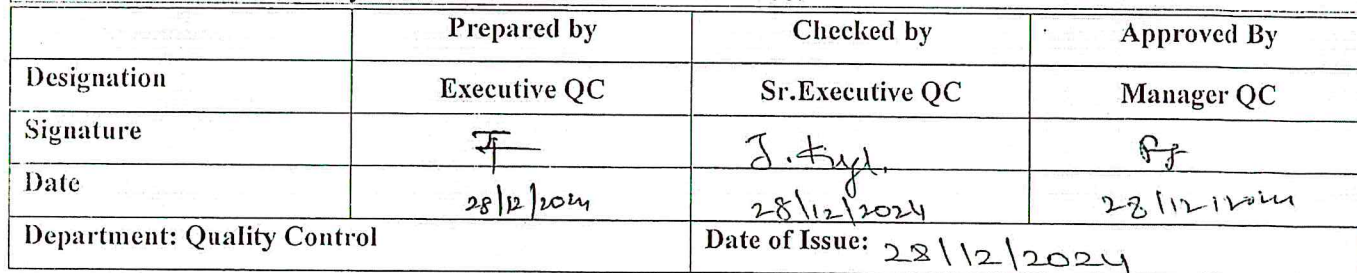 Prepared by Checked by Approved By
Designation Executive QC Sr.Executive QC Manager QC
Signature J.
Date 28/12/2024 28/12/2024 28/12/2024
Department: Quality Control Date of Issue: 28/12/2024